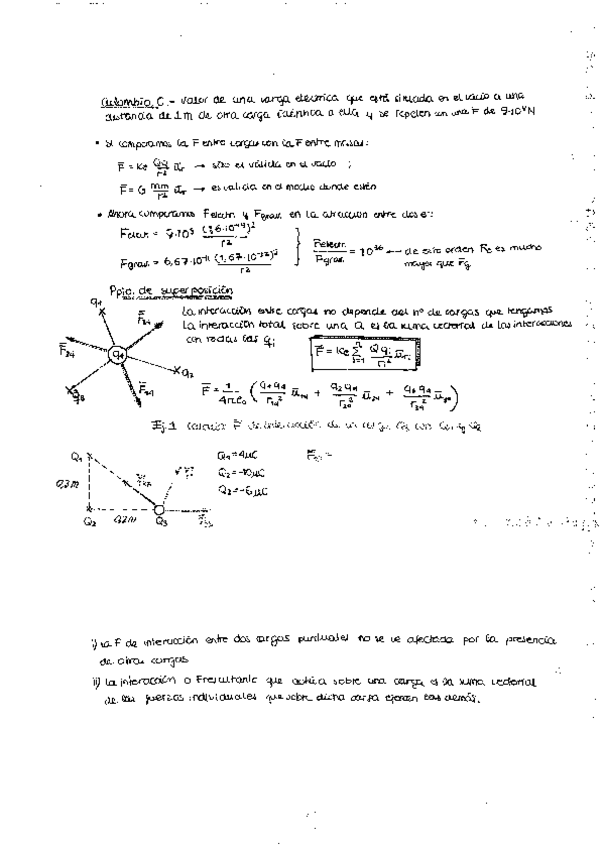 Culombio, C.- Valor de una carga eléctrica que está situada en el vacío a una
distancia de 1m de otra carga idéntica a ella y se repelen con una F de 9·10⁹N
• Si comparamos la F entre cargas con la F entre masas:
F⃗ = Ke Qq/r² u⃗r → sólo es válida en el vacío ;
F⃗ = G mm/r² u⃗r → es valida en el medio donde estén
• Ahora comparamos Felect. y Fgrav. en la atracción entre dos e⁻:
Felect. = 9·10⁹ (1,6·10⁻¹⁹)²/r²
Fgrav. = 6,67·10⁻¹¹ (1,67·10⁻²⁷)²/r²
Felect./Fgrav. = 10³⁶ ← de este orden Fe es mucho
mayor que Fg
Ppio. de superposición
La interacción entre cargas no depende del nº de cargas que tengamos
La interacción total sobre una Q es la suma vectorial de las interacciones
con todas las qi
F⃗ = Ke Σ Q qi/ri² u⃗ri
q1 F⃗34 F⃗24 q4 q2 q3 F⃗14
F⃗ = 1/4πε0 ( q1q4/r14² u⃗14 + q2q4/r24² u⃗24 + q3q4/r34² u⃗34 )
Ej.1 Calcular F⃗ de interacción de un carga Q3 con Q1 y Q2
Q1 Q1=4μC
0,3m Q2=-10μC
Q3=-6μC
Q2 0,2m Q3
i) La F de interacción entre dos cargas puntuales no se ve afectada por la presencia
de otras cargas
ii) La interacción o Fresultante que actúa sobre una carga es la suma vectorial
de las fuerzas individuales que sobre dicha carga ejercen las demás.